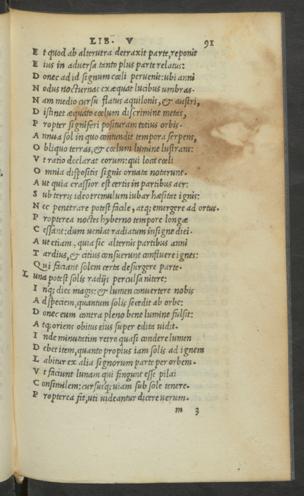 LIB. V 91
E t quod ab alterutra detraxit parte, reponit
E ius in adversa tanto plus parte relatus:
D onec ad id signum cœli pervenit: ubi anni
N odus nocturnas exæquat lucibus umbras.
N am medio cursu flatus aquilonis, & austri,
D istinet æquato cœlum discrimine metas,
P ropter signiferi posituram totius orbis.
A nnua sol in quo contundit tempora serpens,
O bliquo terras, & cœlum lumine lustrans:
V t ratio declarat eorum: qui loca cœli
O mnia dispositis signis ornata notarunt.
A ut quia crassior est certis in partibus aer:
S ub terris ideo tremulum iubar hæsitat ignis:
N ec penetrare potest facile, atq; emergere ad ortus.
P ropterea noctes hyberno tempore longæ
C essant: dum veniat radiatum insigne diei.
A ut etiam, quia sic alternis partibus anni
T ardius, & citius consuerunt confluere ignes:
Q ui faciunt solem certis desurgere parte.
L una potest solis radijs percussa nitere:
I nq; dies magis: & lumen convertere nobis
A d speciem, quantum solis secedit ab orbe:
D onec eum contra pleno bene lumine fulsit:
A tq; oriens obitus eius super edita vidit.
I nde minutatim retro quasi condere lumen
D ebet item, quanto propius iam solis ad ignem
L abitur ex alia signorum parte per orbem.
V t faciunt lunam qui fingunt esse pilai
C onsimilem: cursusq; viam sub sole tenere.
P ropterea fit, uti videantur dicere verum.
m 3